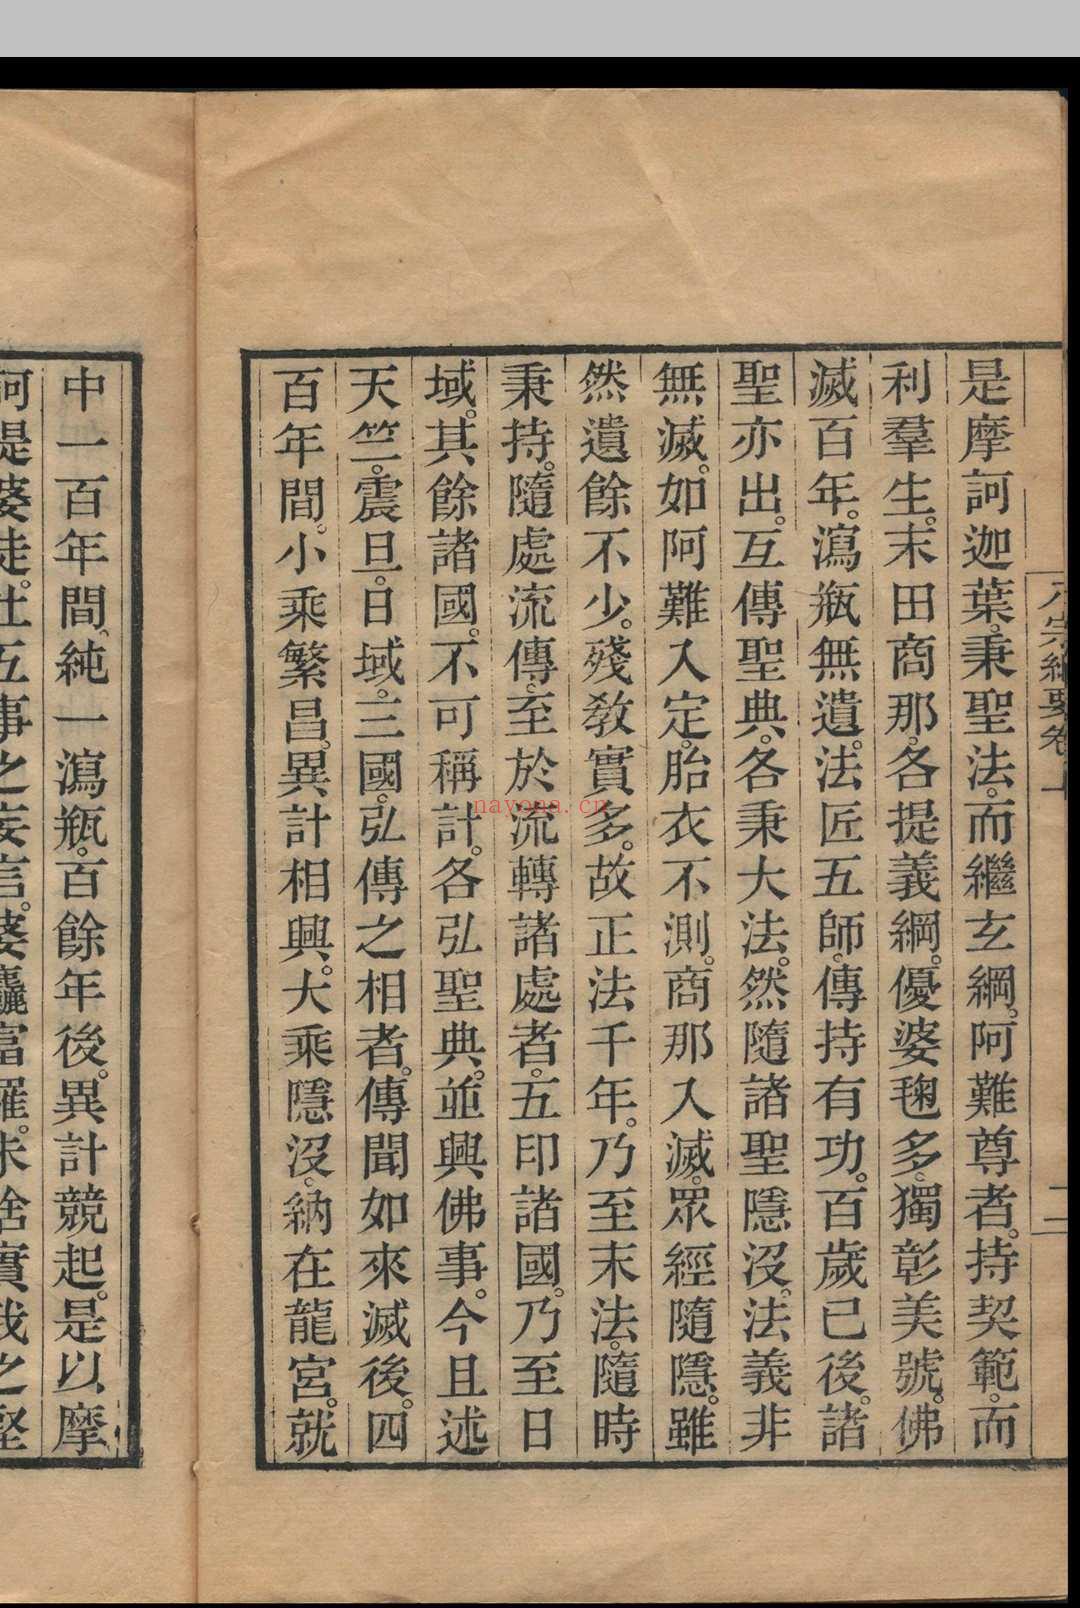 宗綱要卷上
二
是摩訶迦葉。秉聖法。而繼玄綱。阿難尊者。持契範。而
利羣生。末田商那。各提義綱。優婆毱多。獨彰美號。佛
滅百年。瀉瓶無遺。法匠五師。傳持有功。百歲已後。諸
聖亦出。互傳聖典。各秉大法。然隨諸聖隱沒。法義非
無滅。如阿難入定。胎衣不測。商那入滅。眾經隨隱。雖
然遺餘不少。殘教實多。故正法千年。乃至末法。隨時
秉持。隨處流傳。至於流轉諸處者。五印諸國。乃至日
域。其餘諸國。不可稱計。各弘聖典。並興佛事。今且述
天竺。震旦。日域。三國。弘傳之相者。傳聞如來滅後。四
百年間。小乘繁昌。異計相興。大乘隱沒。納在龍宮。就
中一百年間。純一瀉瓶。百餘年後。異計競起。是以摩
訶提婆徒。吐五事之妄言。婆麤富羅。未捨實我之堅
nayona.cn